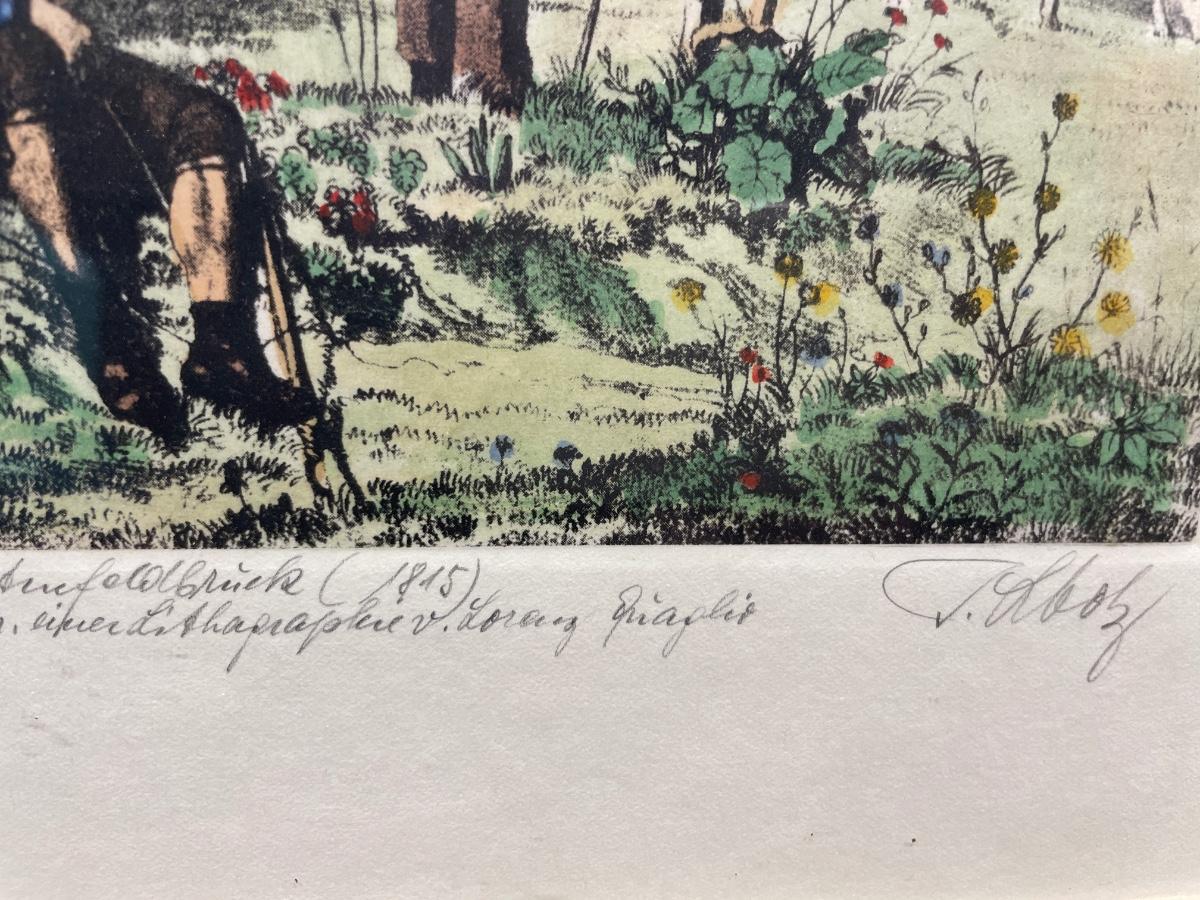 tenfeldbruck (1815)
n. einer Lithographie v. Lorenz Quaglio